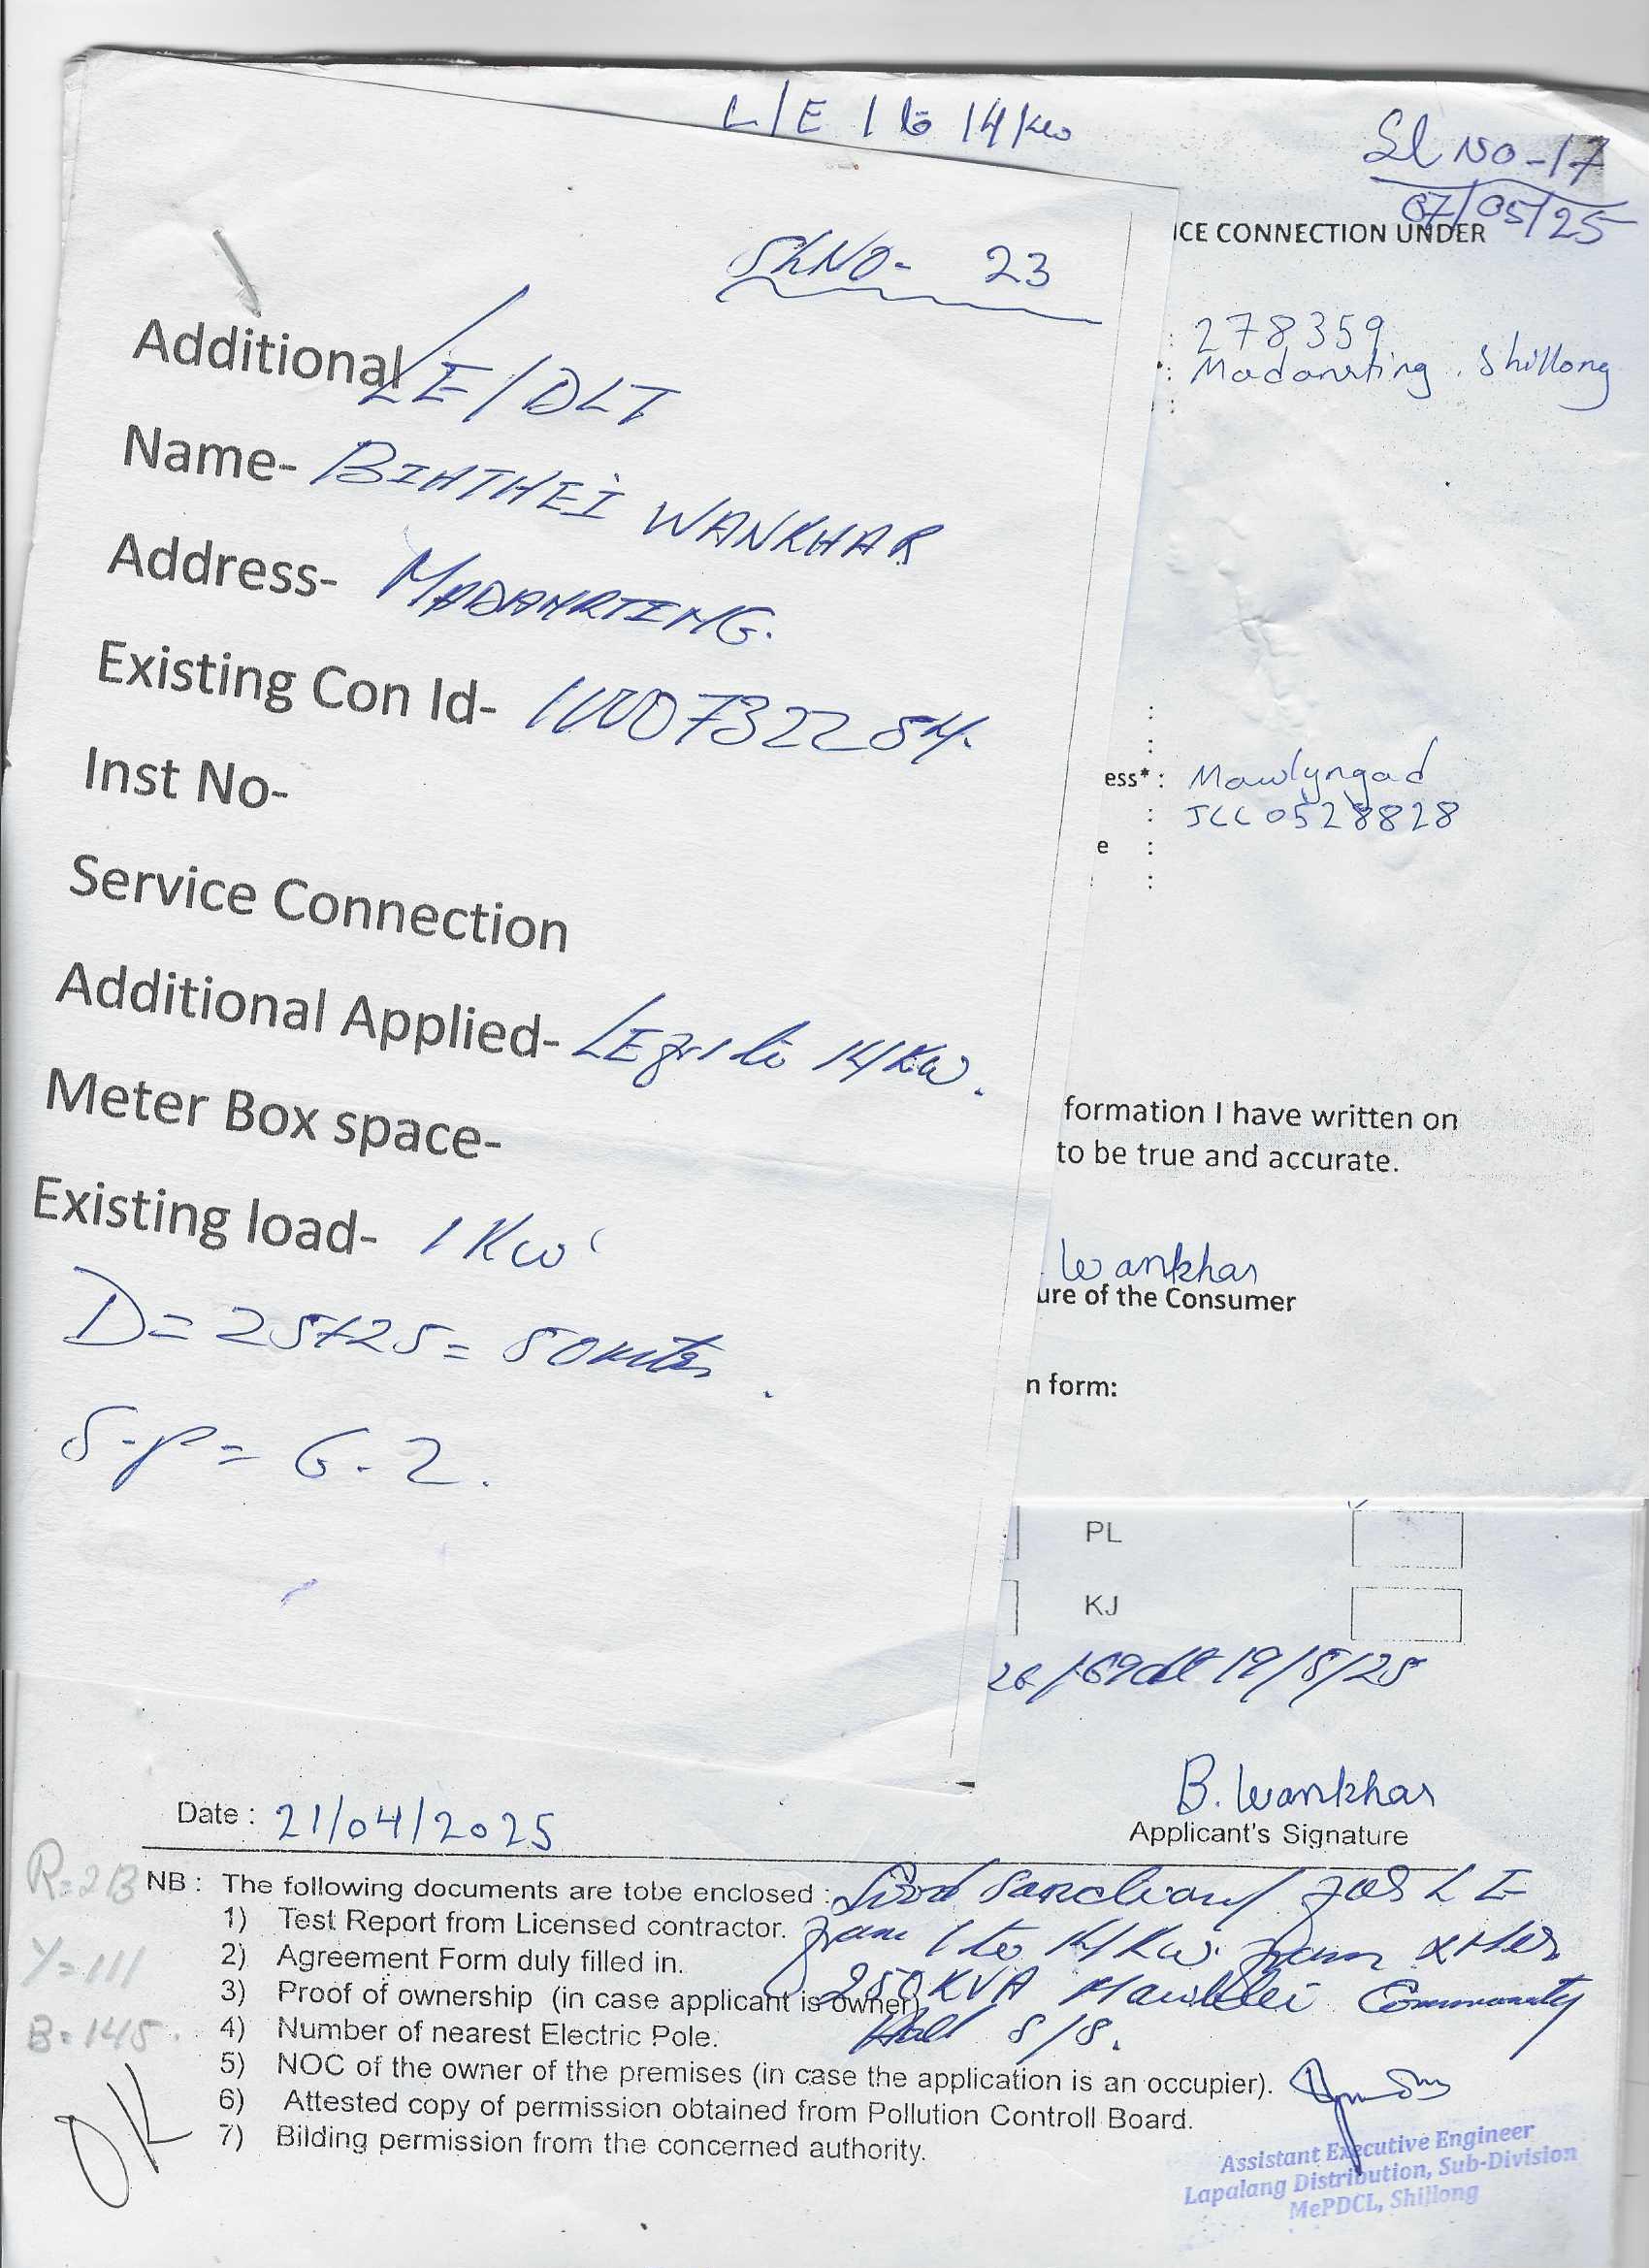 L/E 1 to 14 Kw
Sl No-17
07/05/25
ICE CONNECTION UNDER
Sl.No- 23
: 278359
: Madanrting, Shillong
:
Additional LE/DLT
Name- BIATHEI WANKHAR
Address- MADANRTING.
Existing Con Id-
Inst No-
:
:
ess* : Mawlyngad
: JCC0528828
e :
:
Service Connection
Additional Applied- LE fr 1 to 14 Kw.
Meter Box space-
formation I have written on
to be true and accurate.
Existing load- 1 Kw
Wankhar
ure of the Consumer
D= 25+25= 50 mtrs.
n form:
S-P = G-2.
PL
KJ
dt 19/5/25
B. Wankhar
Date : 21/04/2025
Applicant's Signature
R=213
NB : The following documents are tobe enclosed :
sanctioned for LE
1) Test Report from Licensed contractor.
from 1 to 14 Kw from
Y=111
2) Agreement Form duly filled in.
3) Proof of ownership (in case applicant is owner)
250 KVA Community
B=145.
4) Number of nearest Electric Pole.
Hall S/S.
5) NOC of the owner of the premises (in case the application is an occupier).
6) Attested copy of permission obtained from Pollution Controll Board.
7) Bilding permission from the concerned authority.
OK
Assistant Executive Engineer
Lapalang Distribution, Sub-Division
MePDCL, Shillong